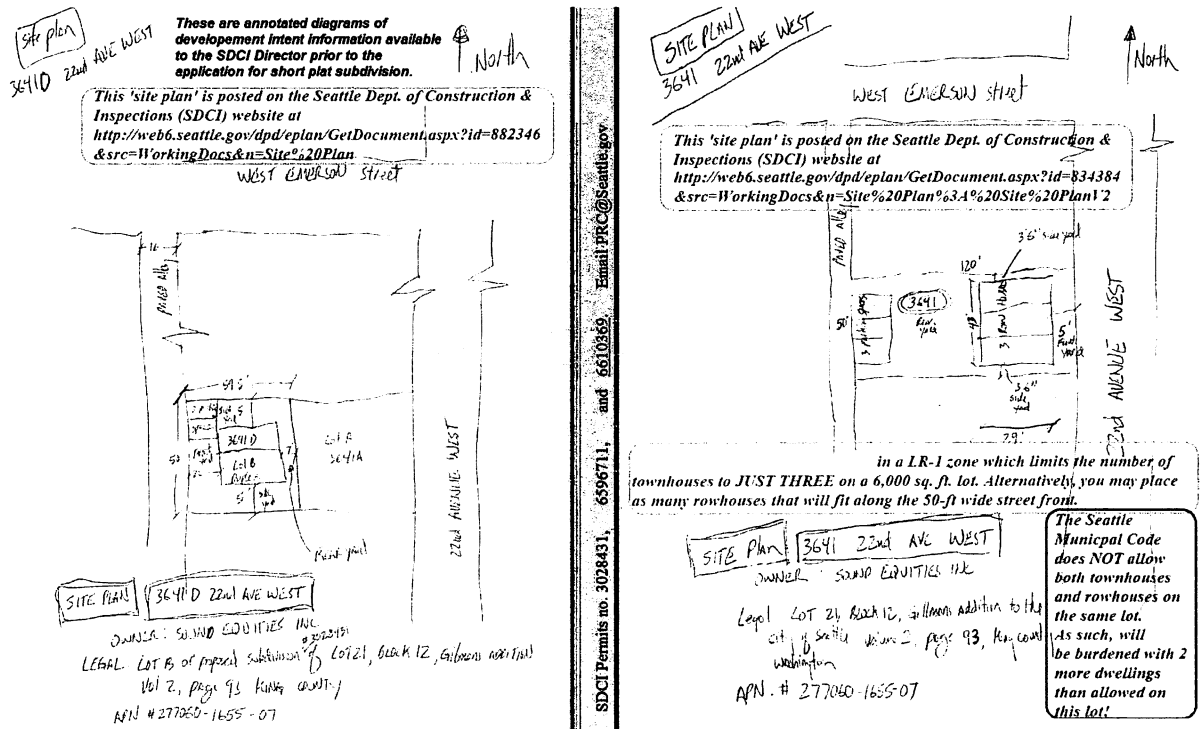 site plan
3641D 22nd AVE WEST
These are annotated diagrams of
developement intent information available
to the SDCI Director prior to the
application for short plat subdivision.
North
This 'site plan' is posted on the Seattle Dept. of Construction &
Inspections (SDCI) website at
http://web6.seattle.gov/dpd/eplan/GetDocument.aspx?id=882346
&src=WorkingDocs&n=Site%20Plan
WEST EMERSON Street
16
PAVED Alley
59.5'
3641D
Lot B
Lot A
3641A
50
7
5'
22nd AVENUE WEST
Front yard
SITE PLAN
3641 D 22nd AVE WEST
OWNER: SOUND EQUITIES INC
#3028431
LEGAL. LOT B of proposed subdivision of LOT 21, BLOCK 12, Gilmans ADDITION
Vol 2, page 93 KING COUNTY
APN # 277060-1655-07
SDCI Permits no. 3028431, 6596711, and 6610369. Email:PRC@Seattle.gov
SITE PLAN
3641 22nd AVE WEST
North
WEST EMERSON street
This 'site plan' is posted on the Seattle Dept. of Construction &
Inspections (SDCI) website at
http://web6.seattle.gov/dpd/eplan/GetDocument.aspx?id=834384
&src=WorkingDocs&n=Site%20Plan%3A%20Site%20PlanV2
PAVED Alley
3'6" side yard
120'
50'
3641
Rear
yard
43'
5'
Front
yard
3'6"
side
yard
29'
22nd AVENUE WEST
in a LR-1 zone which limits the number of
townhouses to JUST THREE on a 6,000 sq. ft. lot. Alternatively, you may place
as many rowhouses that will fit along the 50-ft wide street front.
SITE Plan
3641 22nd AVE WEST
OWNER: SOUND EQUITIES INC
Legal LOT 21, Block 12, Gillmans Addition to the
city of Seattle volume 2, page 93, King county
Washington
APN. # 277060-1655-07
The Seattle
Municpal Code
does NOT allow
both townhouses
and rowhouses on
the same lot.
As such, will
be burdened with 2
more dwellings
than allowed on
this lot!